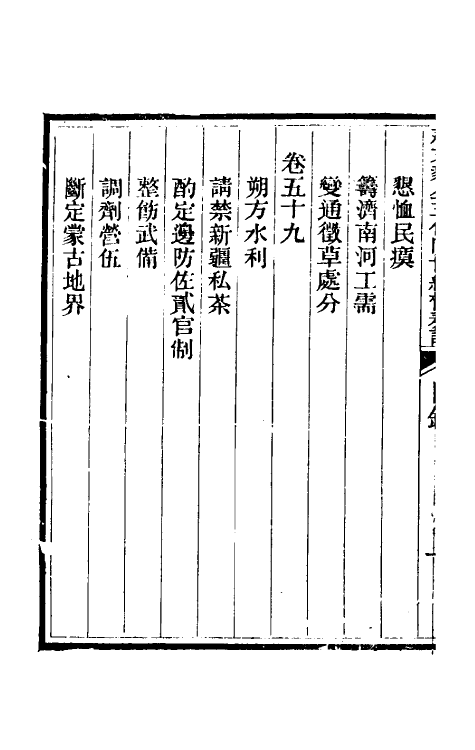 懇恤民瘼
籌濟南河工需
變通徵草處分
卷五十九
朔方水利
請禁新疆私茶
酌定邊防佐貳官制
整飭武備
調劑營伍
斷定蒙古地界
目錄